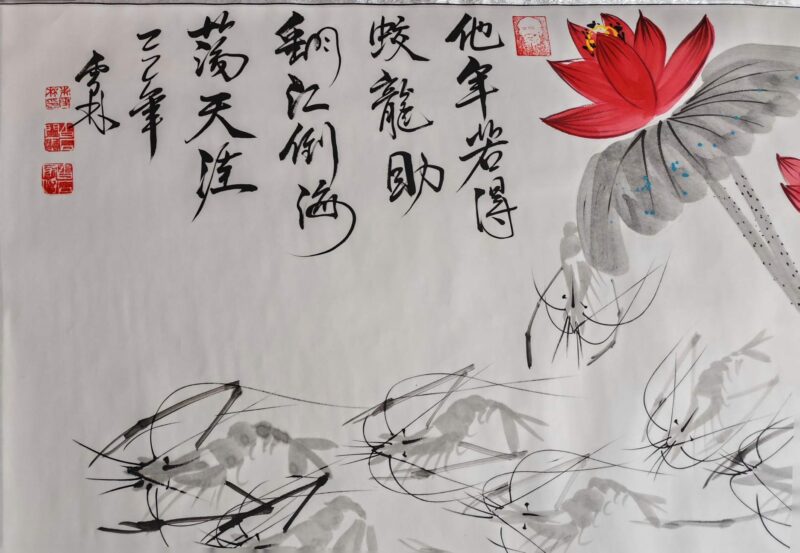 他年若得
蛟龍助
翻江倒海
蕩天涯
二二年
雪林